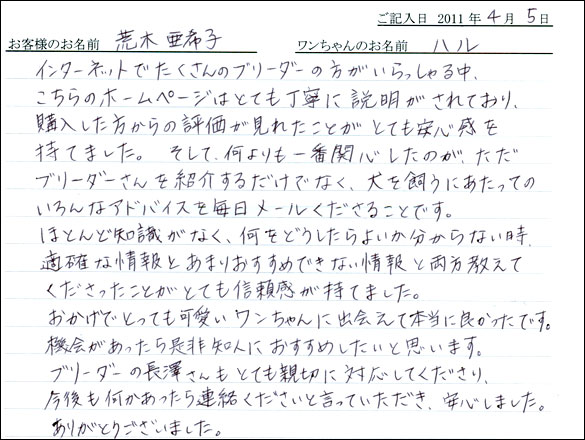 ご記入日 2011年4月5日
お客様のお名前 荒木亜希子 ワンちゃんのお名前 ハル
インターネットでたくさんのブリーダーの方がいらっしゃる中、
こちらのホームページはとても丁寧に説明がされており、
購入した方からの評価が見れたことがとても安心感を
持てました。そして、何よりも一番関心したのが、ただ
ブリーダーさんを紹介するだけでなく、犬を飼うにあたっての
いろんなアドバイスを毎日メールくださることです。
ほとんど知識がなく、何をどうしたらよいか分からない時、
適確な情報とあまりおすすめできない情報と両方教えて
くださったことがとても信頼感が持てました。
おかげでとっても可愛いワンちゃんに出会えて本当に良かったです。
機会があったら是非知人におすすめしたいと思います。
ブリーダーの長澤さんもとても親切に対応してくださり、
今後も何かあったら連絡くださいと言っていただき、安心しました。
ありがとうございました。